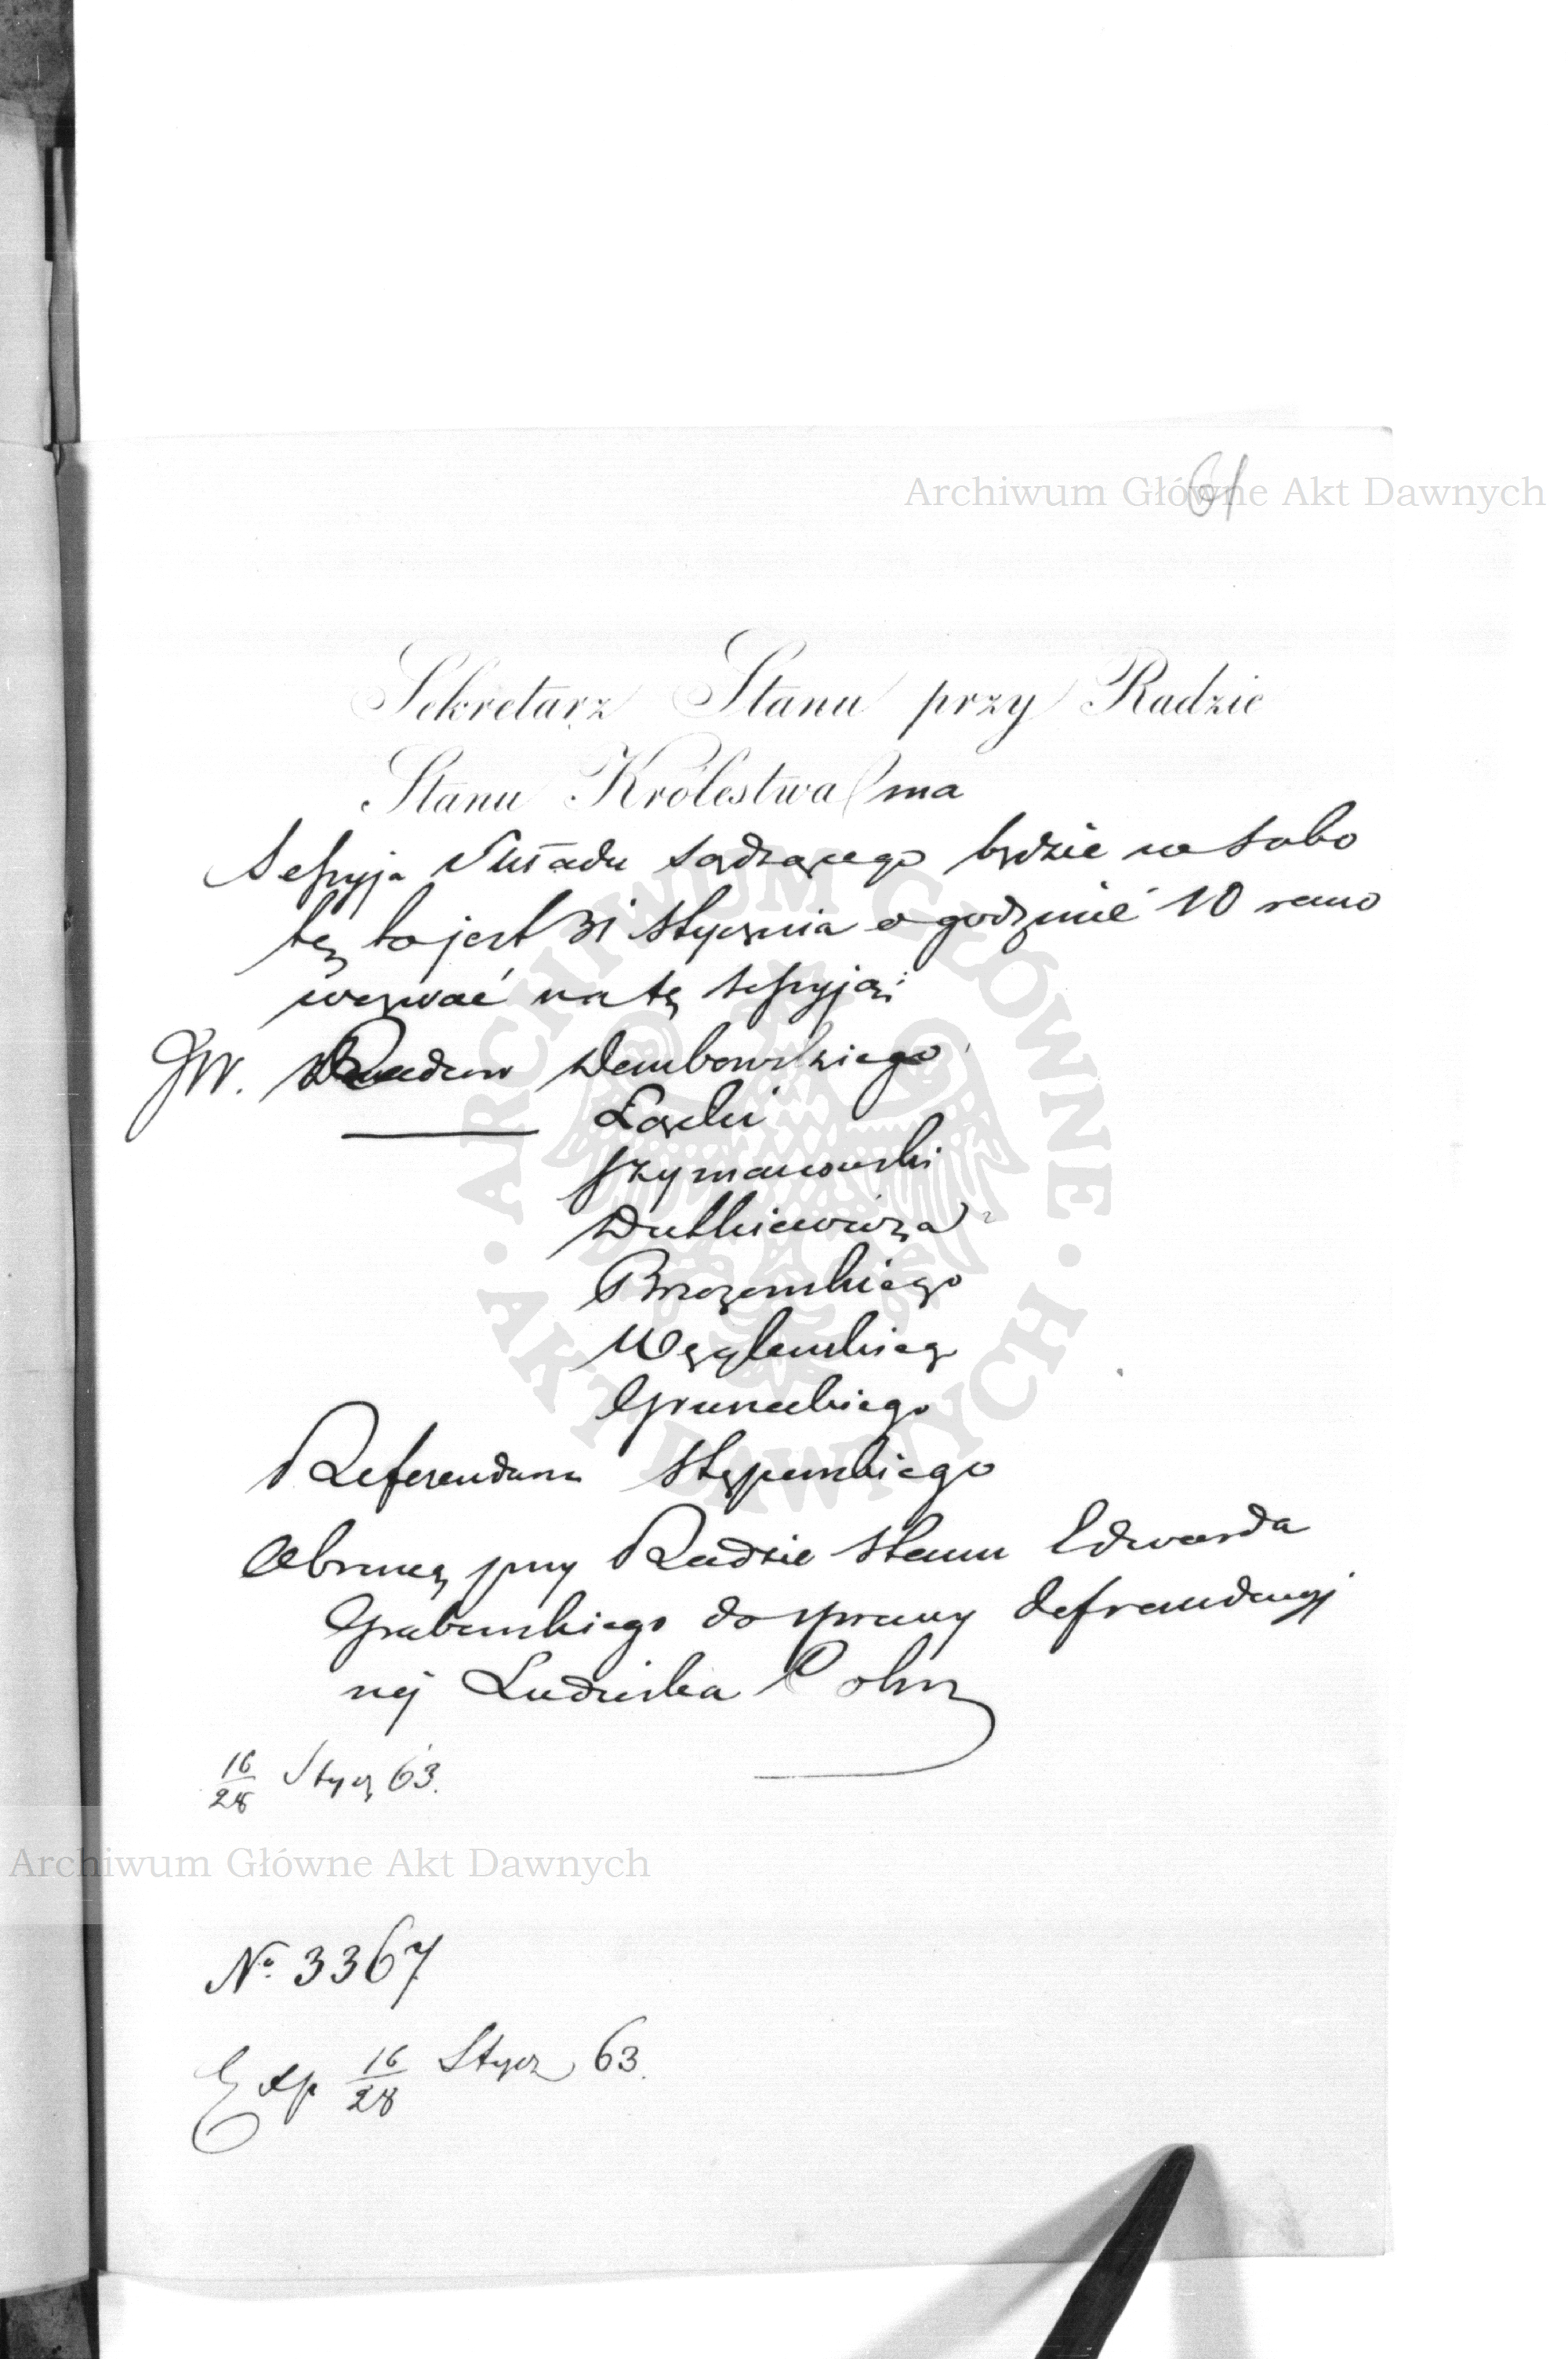 Archiwum Główne Akt Dawnych
61
Sekretarz Stanu przy Radzie
Stanu Królestwa ma
Sessyja Składu Sądzącego będzie w sobo
tę, to jest 31 Stycznia o godzinie 10 rano
wezwać na tę sessyją:
JW. Radców Dembowskiego
Łąski
Szymanowski
Dutkiewicza
Brzozowskiego
Węgleńskieg
Referendarza Stępowskiego
Obrońcę przy Radzie Stanu Edwarda
Grabowskiego do sprawy defraudacyj
nej Ludwika Cohn
16/28 Stycz 63.
Archiwum Główne Akt Dawnych
No. 3367
Exp 16/28 Stycz 63.
ARCHIWUM GŁÓWNE · AKT DAWNYCH ·